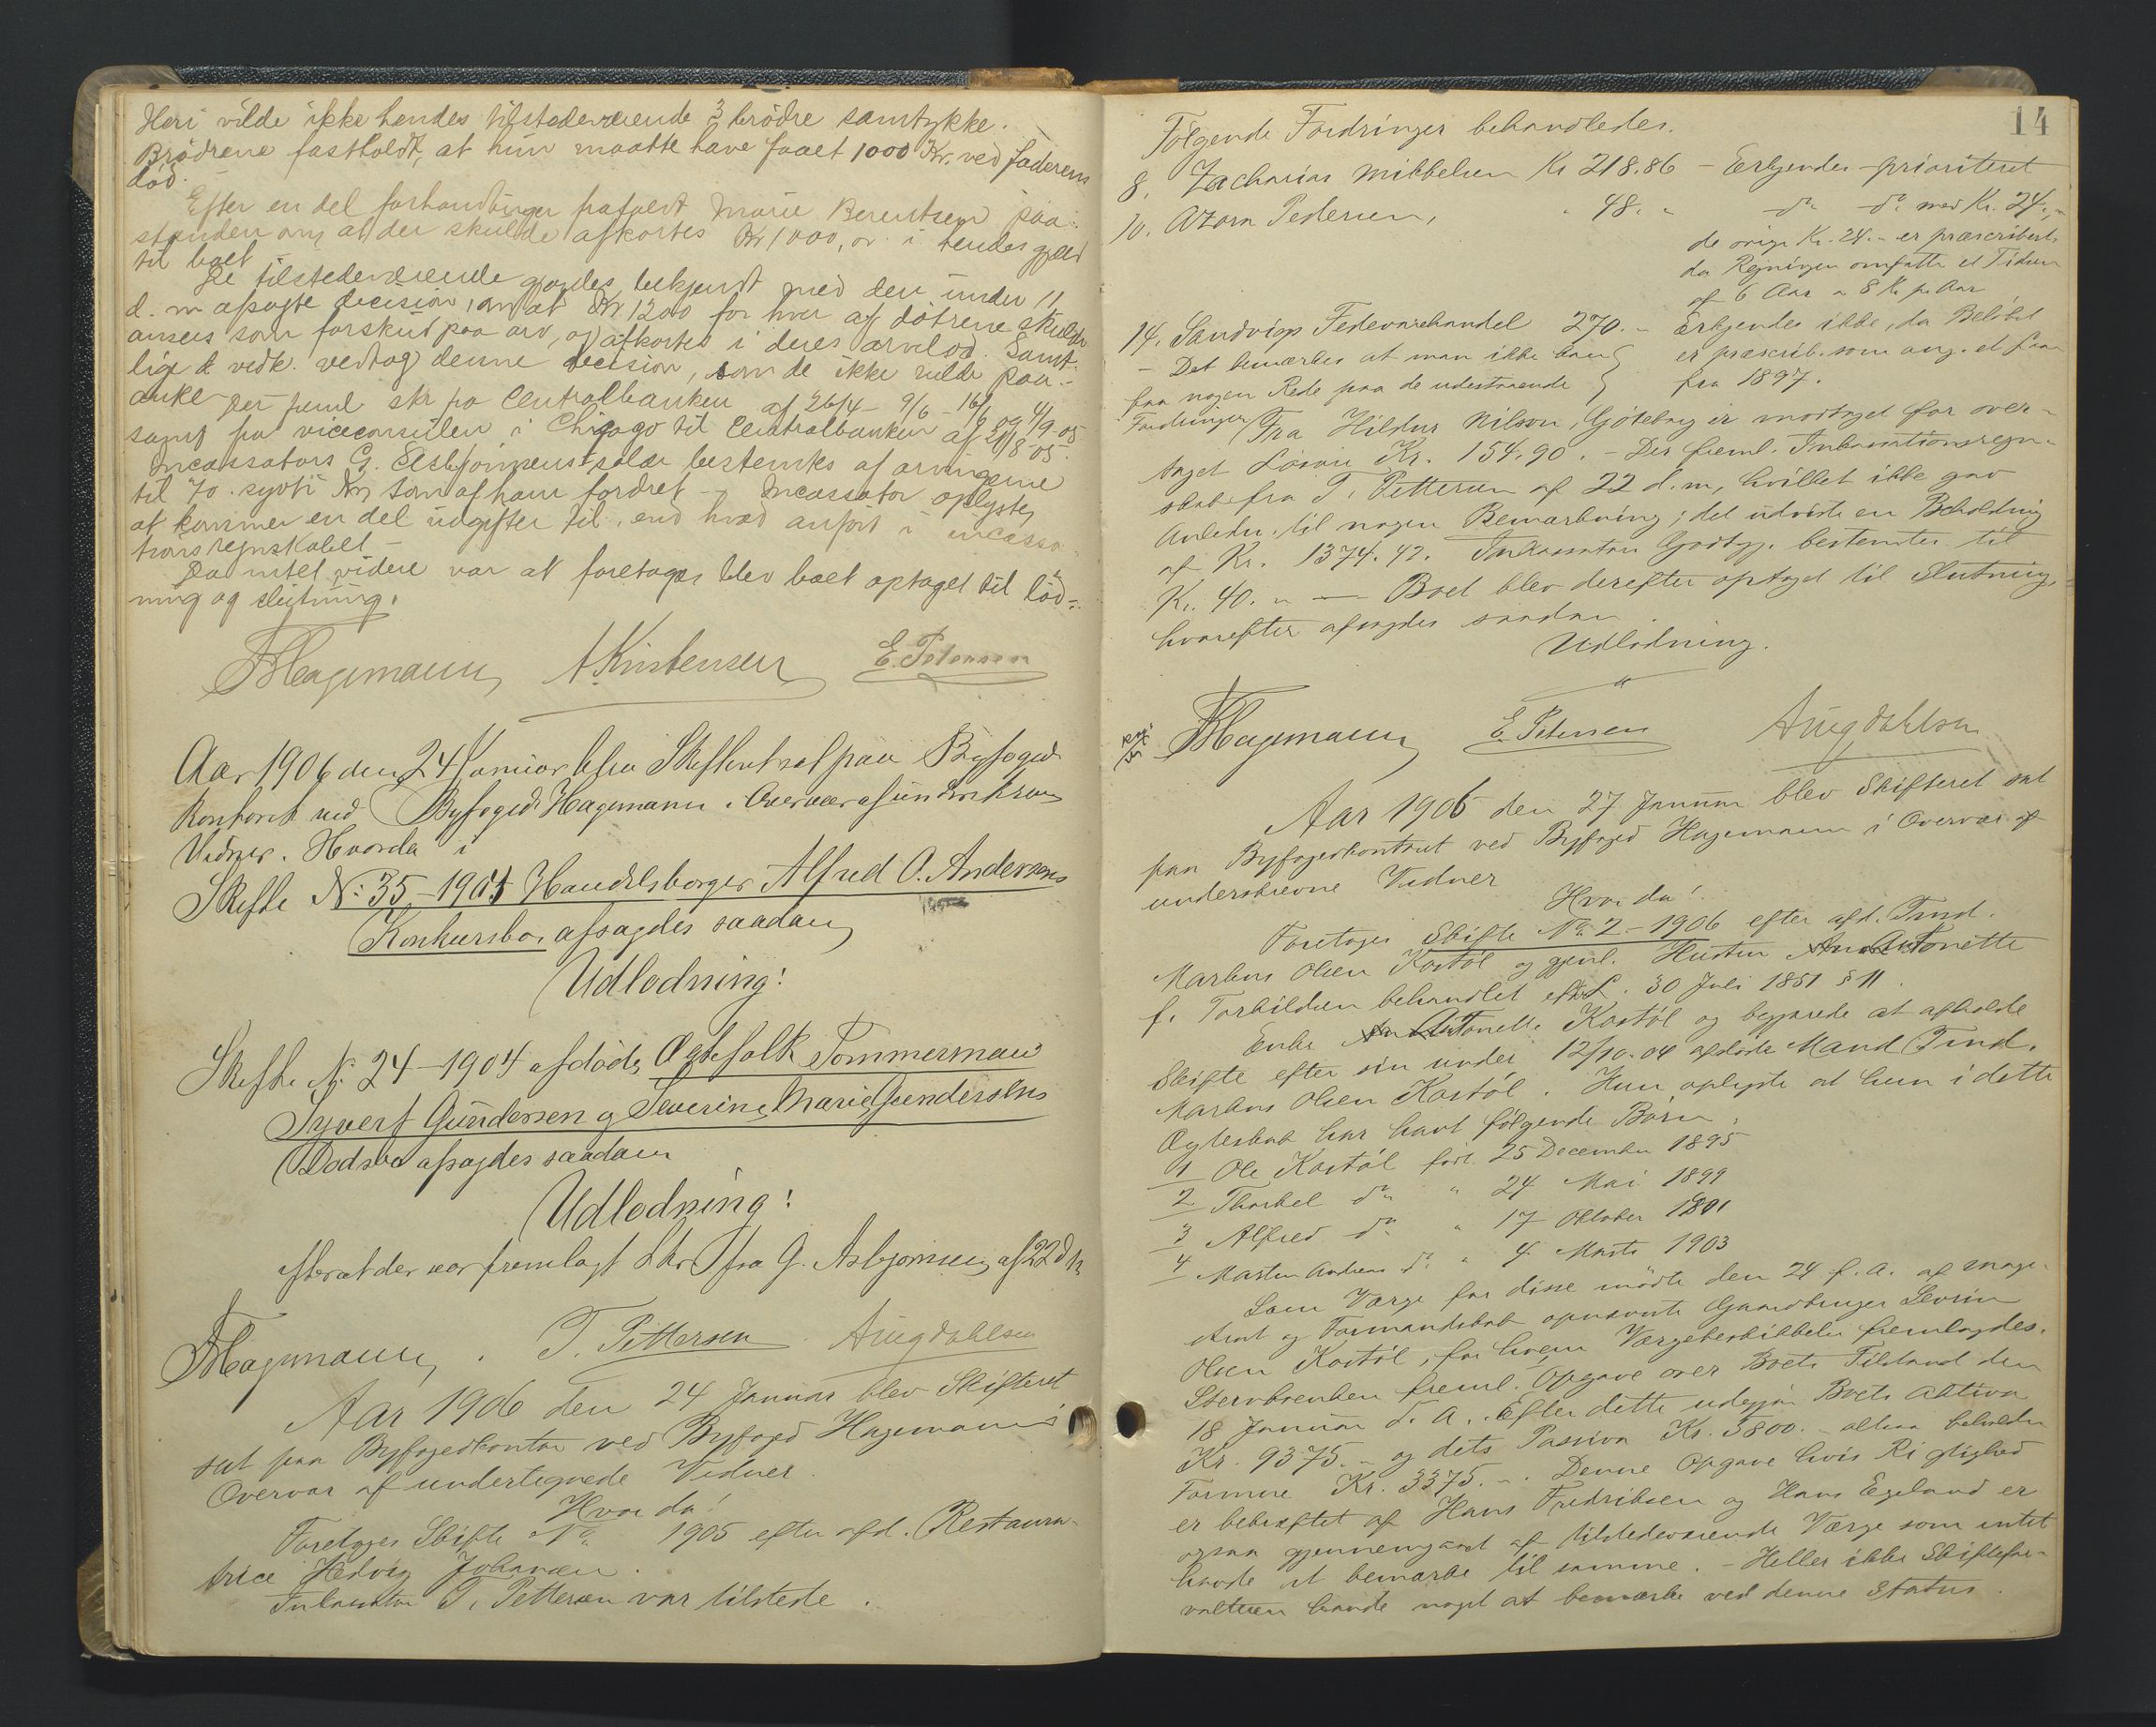 Heri vilde ikke hendes tilstedeværende 3 brødre samtykke.
Brødrene fastholdt, at hun maatte have faaet 1000 Kr. ved faderens
død.
Efter en del forhandlinger frafaldt Marie Berentsen paa-
standen om at der skulde afkortes Kr 1000, i hendes gjæld
til boet
De tilstedeværende gjordes bekjendt med den under 11
d. m afsagte decision, om at Kr 1200 for hver af døtrene skulde
ansees som forskud paa arv, og afkortes i deres arvelod. Samt-
lige vedk. vedtog denne decision, som de ikke vilde paa-
anke
Der freml skr fra Centralbanken af 26/4 - 9/6 - 16/6 og 4/9-05
samt fra viceconsulen i Chigago til Centralbanken af 21/8-05.
Incassators G. Asbjørnsens salær bestemtes af arvingerne
til 70. sytti Kr som af ham fordret - Incassator oplyste,
at kommer en del udgifter til, end hvad anført i incassa-
tionsregnskabet -
Da intet videre var at foretages blev boet optaget til lod-
ning og slutning.
FHagemann A. Kristensen E. Petersen
Aar 1906 den 24 Januar blev Skifteret sat paa Byfoged
kontoret ved Byfoged Hagemann i Overvær af underskrevne
Vidner. Hvorda i
Skifte No 35 - 1905 Handelsborger Alfred O. Andersens
Konkursbo, afsagdes saadan
Udlodning!
Skifte No 24 - 1904 afdøde Ægtefolk Tømmermand
Syvert Gundersen og Severine Marie Gundersens
Dødsbo afsagdes saadan
Udlodning!
efterat der var fremlagt Skr fra G. Asbjørnsen af 22 d M
FHagemann. T. Pettersen Aug Dahlsen
Aar 1906 den 24 Januar blev Skifteret
sat paa Byfogedkontor ved Byfoged Hagemann i
Overvær af undertegnede Vidner.
Hvor da!
Foretages Skifte No 1905 efter afd. Restaura-
trice Hedvig Johansen.
Inkassator T. Pettersen var tilstede.
14
Følgende Fordringer behandledes.
8. Zacharias Mikkelsen Kr 218.86 - Erkjendes - prioriteret
10. Azora Pedersen, " 48. " do do med Kr. 24.-
de øvrige Kr. 24.- er præscriberte
da Regningen omfatter et Tidsrum
af 6 Aar a 8 Kr. pr. Aar
14. Sandvigs Fedevarehandel 270.- Erkjendes ikke, da Beløbet
- Det bemærkes at man ikke kan er præscrib. som ang. et Laan
faa nogen Rede paa de udestaaende fra 1897.
Fordringer
Fra Hildur Nilson, Gøteborg er modtaget for over-
taget Løsøre Kr. 154.90. - Der freml. Inkassationsregn-
skab fra T. Pettersen af 22 d. m, hvilket ikke gav
Anledn. til nogen Bemærkning; det udviste en Beholdning
af Kr. 1374.42. Inkassators Godtgj. bestemtes til
Kr. 40. " - Boet blev derefter optaget til Slutning,
hvorefter afsagdes saadan
Udlodning.
FHagemann E. Petersen Aug Dahlsen
Aar 1906 den 27 Januar blev Skifteret sat
paa Byfogedkontoret ved Byfoged Hagemann i Overvær af
underskrevne Vidner
Hvor da!
Foretages Skifte No 2 - 1906 efter afd. Tmd.
Markus Olsen Kostøl og gjenl. Hustru Antonette
f. Torkildsen behandlet efter L. 30 Juli 1851 § 11.
Enke Antonette Kostøl og begjærede at afholde
Skifte efter sin under 12/10-04 afdøde Mand Tmd.
Markus Olsen Kostøl. Hun oplyste at hun i dette
Ægteskab har havt følgende Børn.
1 Ole Kostøl født 25 December 1895
2 Thorkel do " 24 Mai 1899
3 Alfred do " 17 Oktober 1901
4 Martin Andreas do " 4 Marts 1903
Som Værge for disse mødte den 24 f. A. af Mage-
strat og Formandskab opnævnte Gaardbruger Sevrin
Olsen Kostøl, for hvem Værgebeskikkelse fremlagdes.
Stervboenken freml. Opgave over Boets Tilstand den
18 Januar d. A. Efter dette udgjør Boets Aktiva
Kr. 9375.- og dets Passiva Kr. 5800.- altsaa beholden
Formue Kr. 3375.-. Denne Opgave hvis Rigtighed
er bekræftet af Hans Fredriksen og Hans Egeland er
ogsaa gjennemgaaet af tilstedeværende Værge som intet
havde at bemærke til samme. - Heller ikke Skiftefor-
valteren havde noget at bemærke ved denne Status.